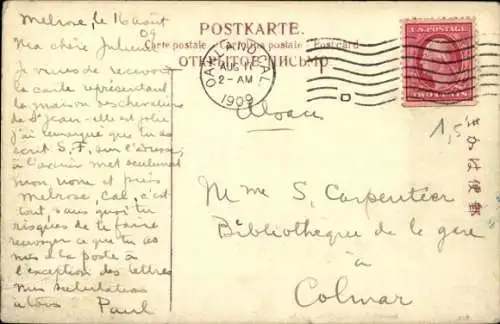 Melrose, le 16 août
09
Ma chère Julienne
Je viens de recevoir
la carte représentant
la maison des chevaliers
de St Jean - elle est jolie
j'ai remarqué que tu as
écrit S. F. sur l'adresse,
à l'avenir met seulement
mon nom et puis
Melrose, Cal, c'est
tout, sans quoi tu
risques de te faire
renvoyer ce que tu as
mis à la poste à
l'exception des lettres
mes salutations
à tous Paul
POSTKARTE.
Carte postale Cartolina postale Postcard
ОТКРЫТОЕ ПИСЬМО.
OAKLAND, CAL.
AUG 16
2-AM
1909
U.S. POSTAGE
TWO CENTS
Alsace
1,5
きかは便郵
Mme S. Carpentier
Bibliothèque de la gare
à
Colmar